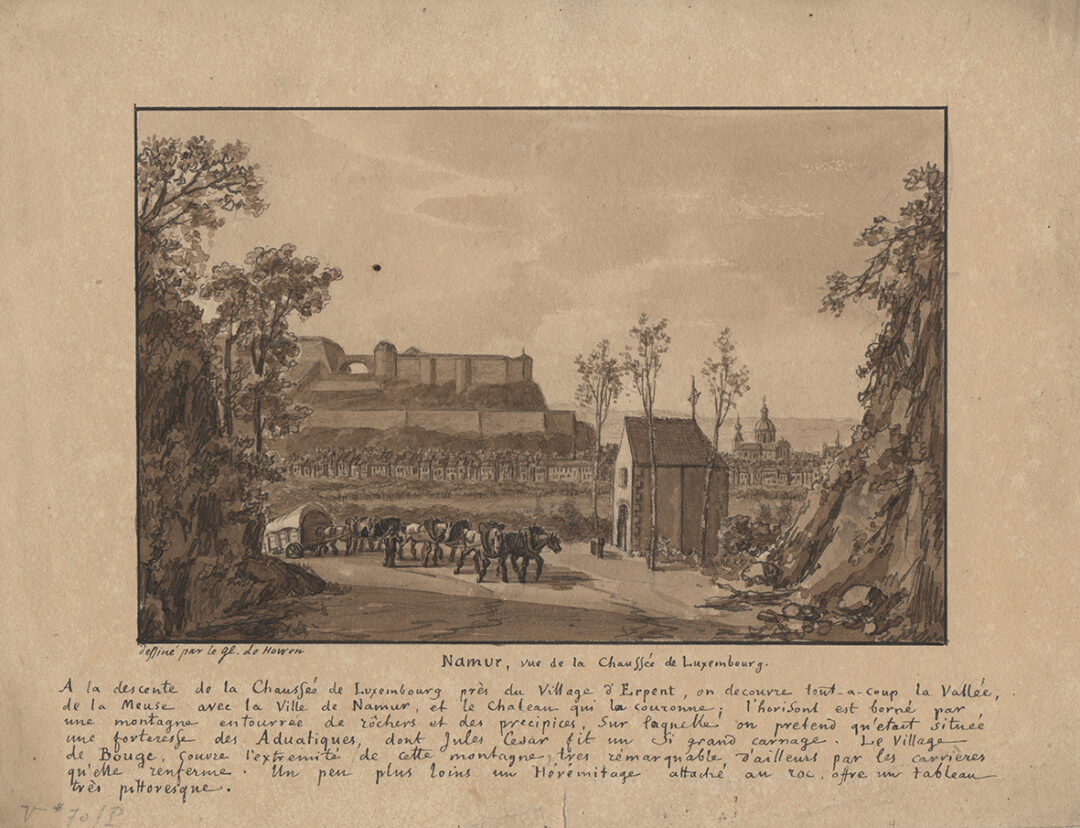 deſſiné par le gl. de Howen
Namur, vue de la Chauſſée de Luxembourg.
A la descente de la Chauſſeé de Luxembourg près du Village d'Erpent, on decouvre tout-a-coup la Vallée,
de la Meuse avec la Ville de Namur, et le Chateau qui la couronne; l'horiſont est borné par
une montagne entourrée de rôchers et des precipices, Sur laquelle on pretend qu'était située
une forteresse des Aduatiques, dont Jules Cesar fit un Si grand carnage. Le Village
de Bouge, couvre l'extremité de cette montagne, tres rémarquable d'ailleurs par les carrières
qu'elle renferme. Un peu plus loins un Hérémitage attaché au roc, offre un tableau
très pittoresque.
V * 70/P